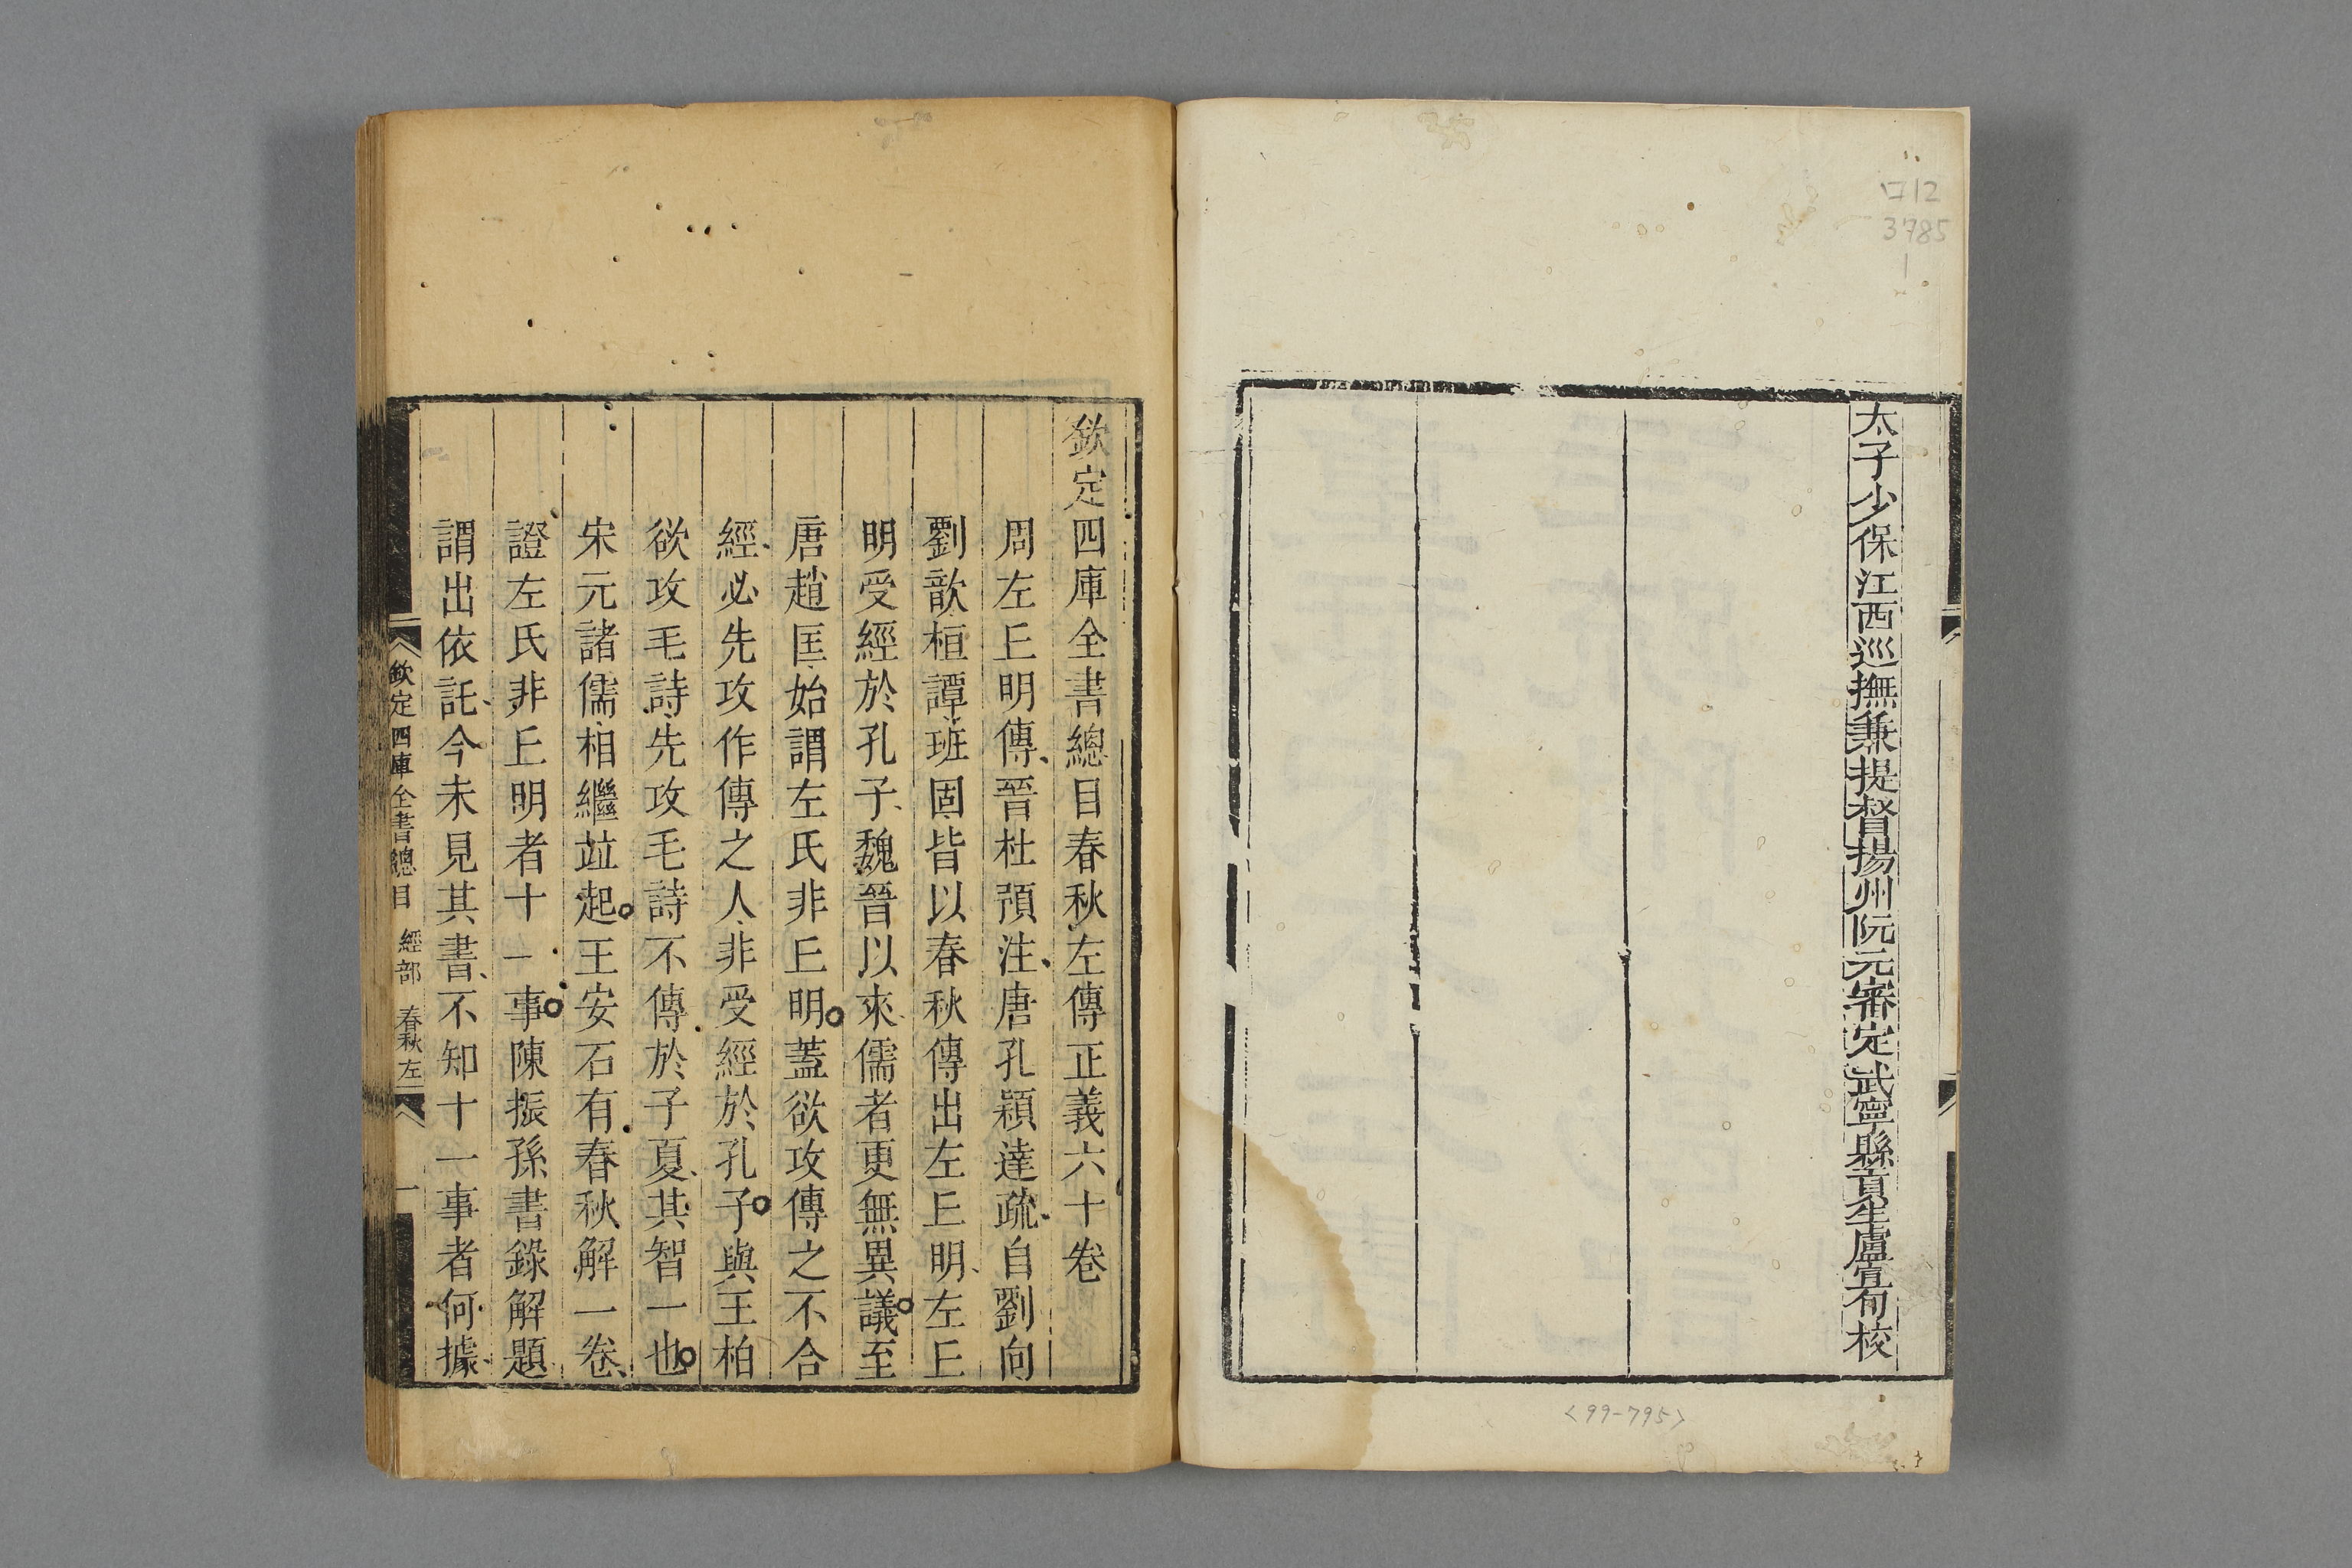 712
3785
1
太子少保江西巡撫兼提督揚州阮元審定武寧縣貢生盧宣旬校
<99-795>
欽定四庫全書總目春秋左傳正義六十卷
周左丘明傳晉杜預注唐孔穎達疏自劉向
劉歆桓譚班固皆以春秋傳出左丘明左丘
明受經於孔子魏晉以來儒者更無異議至
唐趙匡始謂左氏非丘明蓋欲攻傳之不合
經必先攻作傳之人非受經於孔子與王柏
欲攻毛詩先攻毛詩不傳於子夏其智一也
宋元諸儒相繼竝起王安石有春秋解一卷
證左氏非丘明者十一事陳振孫書錄解題
謂出依託今未見其書不知十一事者何據
欽定四庫全書總目 經部 春秋左 一